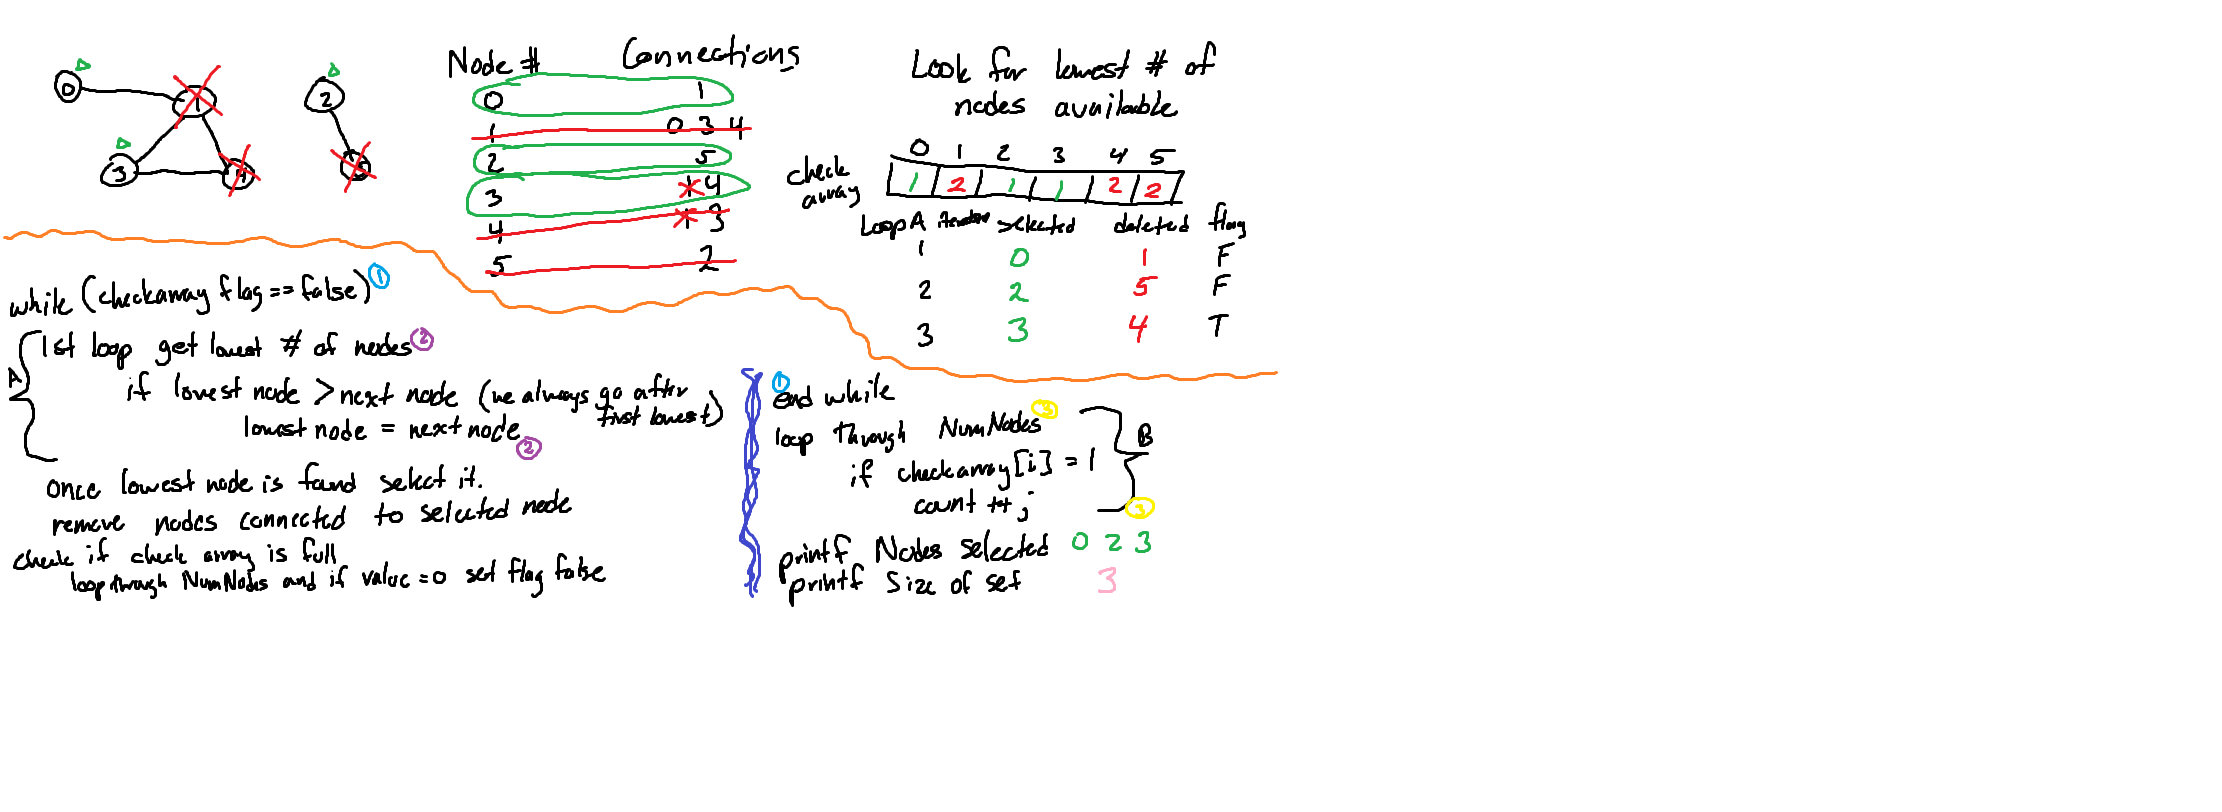 0
1
2
3
4
5
Node # Connections
0 1
1 0 3 4
2 5
3 1 4
4 1 3
5 2
Look for lowest # of
nodes available
0 1 2 3 4 5
check
array
1 2 1 1 2 2
Loop A iteration selected deleted flag
1 0 1 F
2 2 5 F
3 3 4 T
while (checkarray flag == false) 1
A
1st loop get lowest # of nodes 2
if lowest node > next node (we always go after
first lowest)
lowest node = next node
2
once lowest node is found select it.
remove nodes connected to selected node
check if check array is full
loop through NumNodes and if value = 0 set flag false
1
end while
loop through NumNodes 3
B
if checkarray[i] = 1
count ++;
3
printf Nodes selected 0 2 3
printf Size of set 3